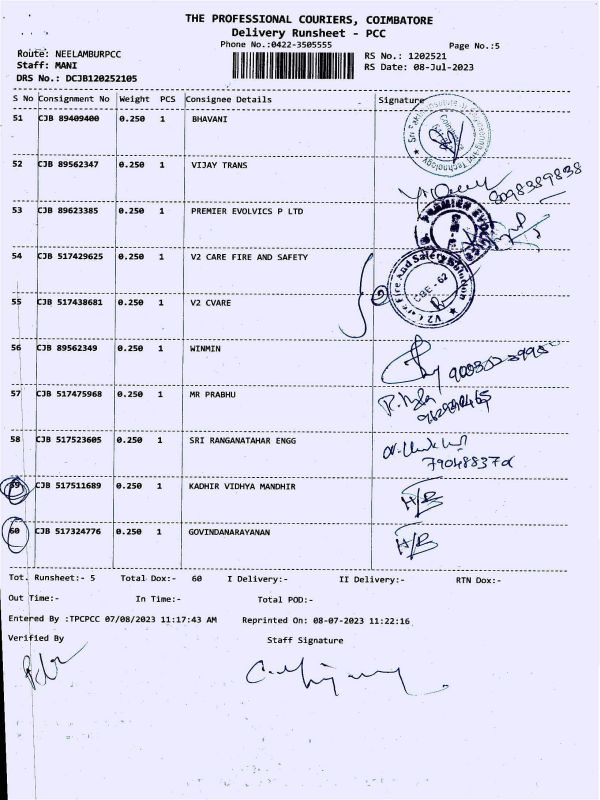 THE PROFESSIONAL COURIERS, COIMBATORE
Delivery Runsheet - PCC
Phone No.:0422-3505555
Page No.:5
Route: NEELAMBURPCC
RS No.: 1202521
Staff: MANI
RS Date: 08-Jul-2023
DRS No.: DCJB120252105
S No Consignment No Weight PCS Consignee Details Signature
51 CJB 89409400 0.250 1 BHAVANI
52 CJB 89562347 0.250 1 VIJAY TRANS
8098389838
53 CJB 89623385 0.250 1 PREMIER EVOLVICS P LTD
PREMIER EVOLVICS
54 CJB 517429625 0.250 1 V2 CARE FIRE AND SAFETY
V2 Care Fire And Safety Solution
CBE - 62
55 CJB 517438681 0.250 1 V2 CVARE
56 CJB 89562349 0.250 1 WINMIN
57 CJB 517475968 0.250 1 MR PRABHU
58 CJB 517523605 0.250 1 SRI RANGANATAHAR ENGG
59 CJB 517511689 0.250 1 KADHIR VIDHYA MANDHIR
H/B
60 CJB 517324776 0.250 1 GOVINDANARAYANAN
H/B
Tot. Runsheet:- 5 Total Dox:- 60 I Delivery:- II Delivery:- RTN Dox:-
Out Time:- In Time:- Total POD:-
Entered By :TPCPCC 07/08/2023 11:17:43 AM Reprinted On: 08-07-2023 11:22:16
Verified By Staff Signature